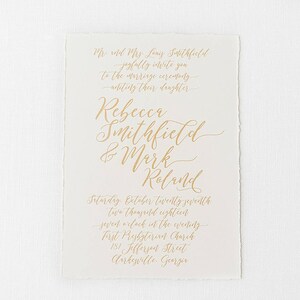 Mr. and Mrs. Louis Smithfield
joyfully invite you
to the marriage ceremony
uniting their daughter
Rebecca
Smithfield
& Mark
Roland
Saturday, October twenty seventh
two thousand eighteen
seven o'clock in the evening
First Presbyterian Church
Jefferson Street
Clarkesville, Georgia